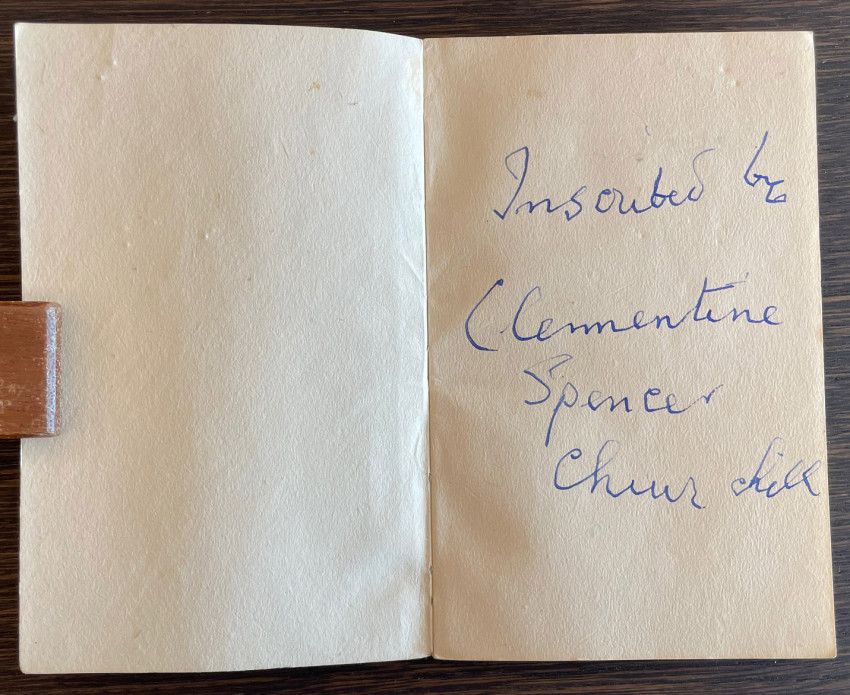 Inscribed by
Clementine
Spencer
Churchill